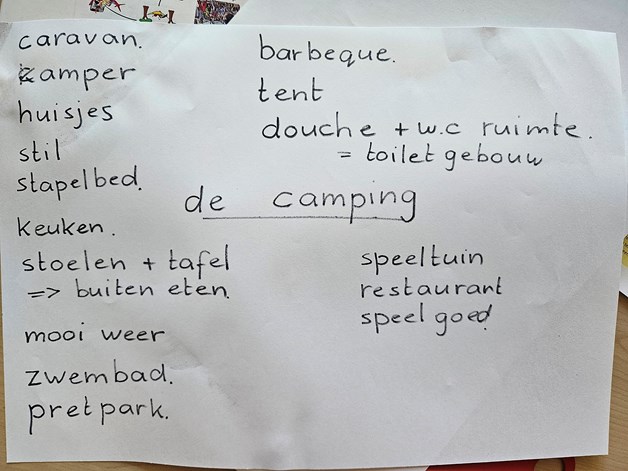 caravan.
camper
huisjes
stil
stapelbed.
keuken.
stoelen + tafel
=> buiten eten.
mooi weer
zwembad.
pretpark.
barbeque.
tent
douche + w.c ruimte.
= toilet gebouw
de camping
speeltuin
restaurant
speelgoed.